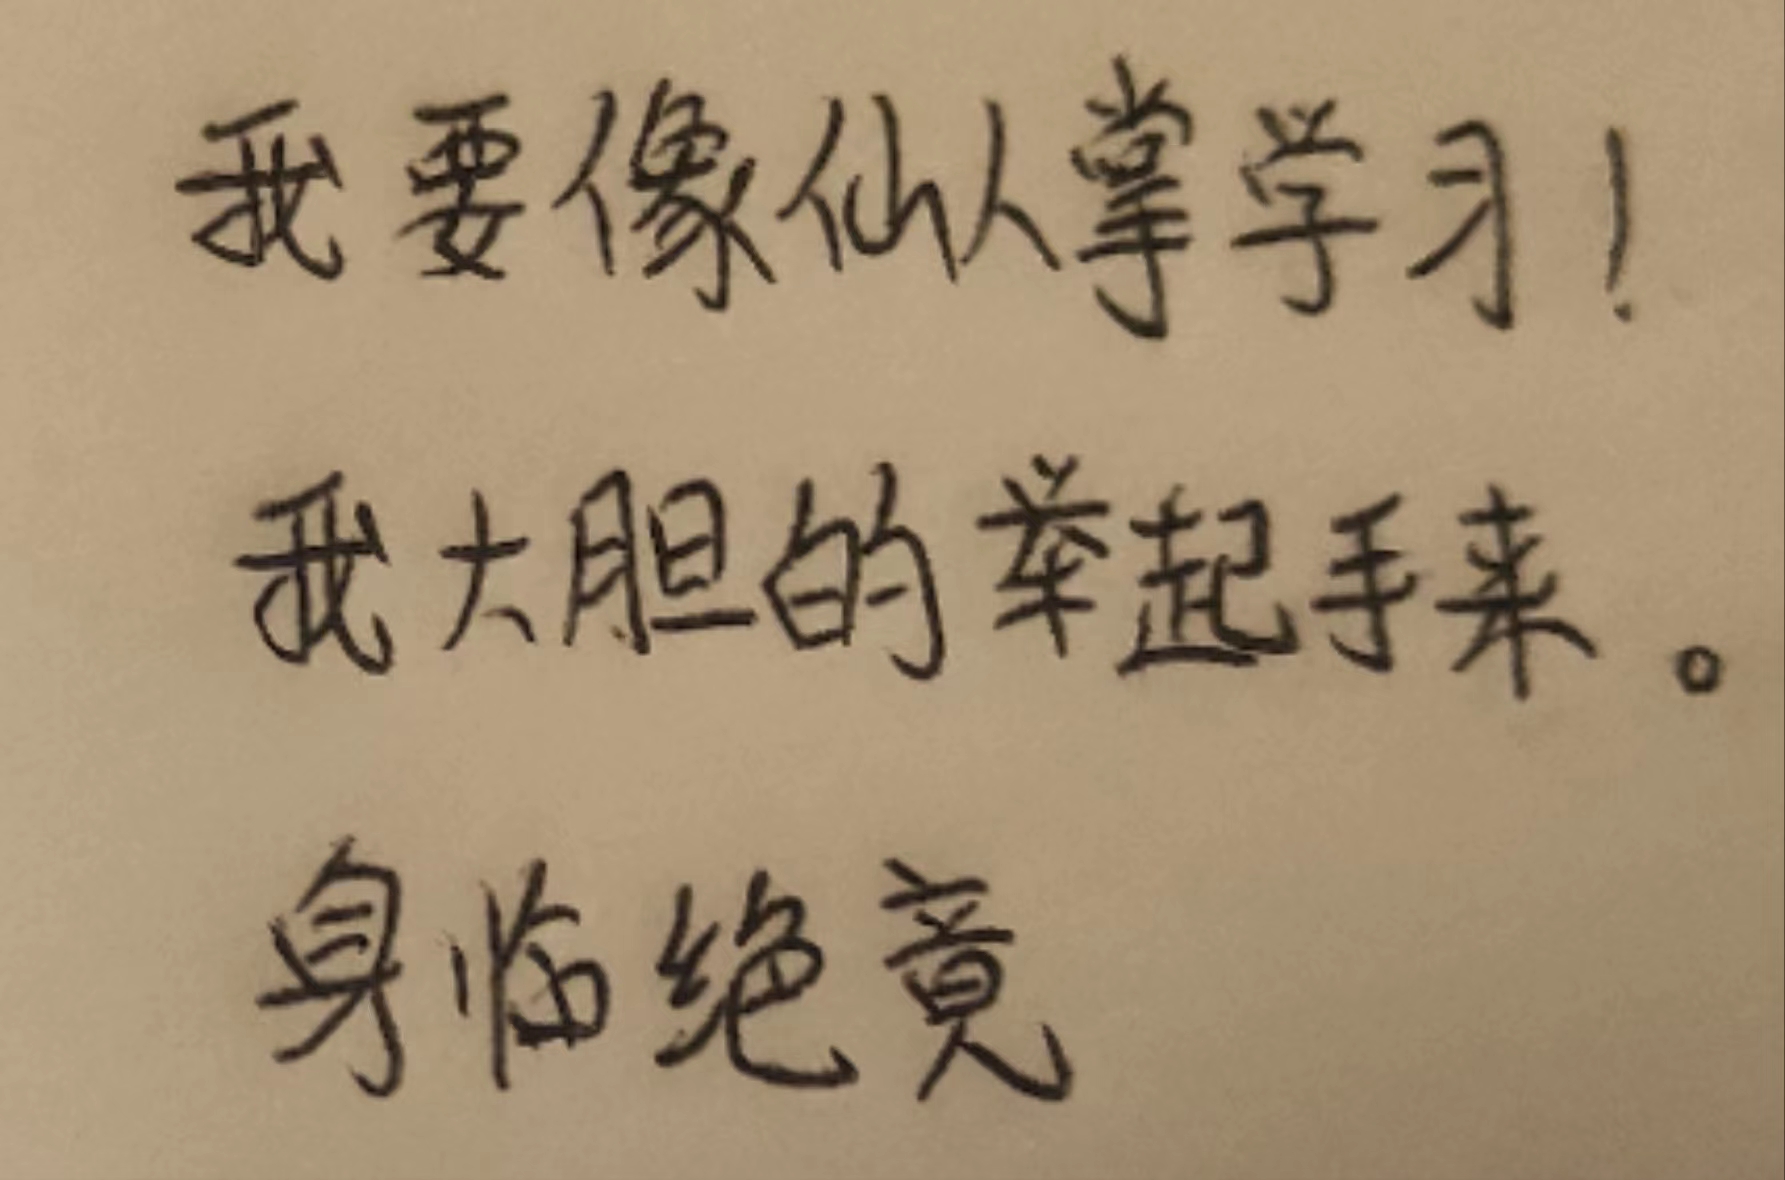 我要像仙人掌学习！
我大胆的举起手来。
身临绝竟